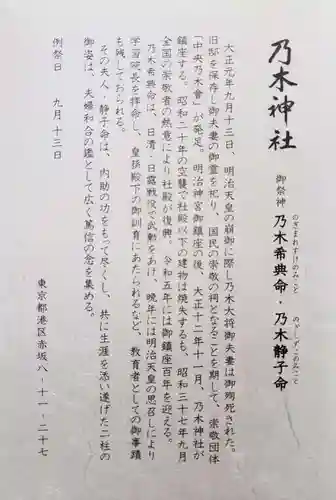 乃木神社
御祭神
乃木希典命・乃木静子命
のぎまれすけのみこと
のぎしずこのみこと
大正元年九月十三日、明治天皇の崩御に際し乃木大将御夫妻は御殉死された。
旧邸を保存し御夫妻の御霊を祀り、国民の崇敬の祠となることを期して、崇敬団体
「中央乃木會」が発足。明治神宮御鎮座の後、大正十二年十一月、乃木神社が
鎮座する。昭和二十年の空襲で社殿以下の建物は焼失するも、昭和三十七年九月
全国の崇敬者の熱意により社殿が復興。令和五年には御鎮座百年を迎える。
乃木希典命は、日清・日露戦役で武勲をあげ、晩年には明治天皇の思召しにより
学習院長を拝命し、皇孫殿下の御訓育にあたられるなど、教育者としての御事蹟
も残しておられる。
その夫人・静子命は、内助の功をもって尽くし、共に生涯を添い遂げた二柱の
御姿は、夫婦和合の鑑として広く篤信の念を集める。
例祭日　九月十三日
東京都港区赤坂八-十一-二十七